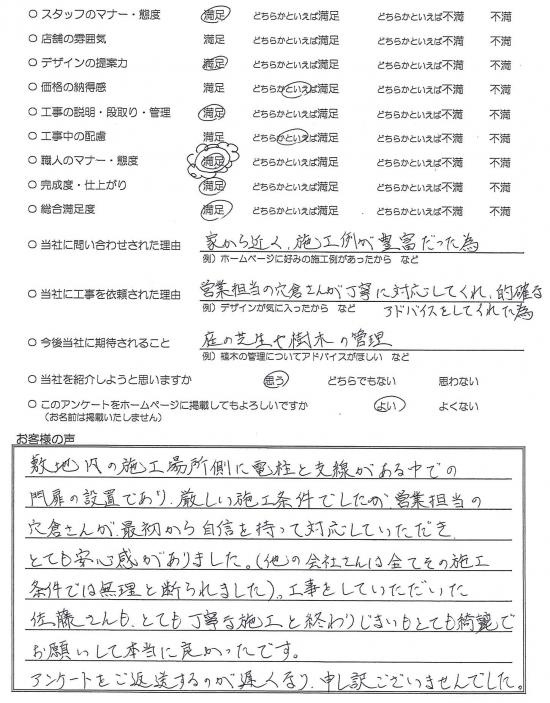 ○ スタッフのマナー・態度 満足 どちらかといえば満足 どちらかといえば不満 不満
○ 店舗の雰囲気 満足 どちらかといえば満足 どちらかといえば不満 不満
○ デザインの提案力 満足 どちらかといえば満足 どちらかといえば不満 不満
○ 価格の納得感 満足 どちらかといえば満足 どちらかといえば不満 不満
○ 工事の説明・段取り・管理 満足 どちらかといえば満足 どちらかといえば不満 不満
○ 工事中の配慮 満足 どちらかといえば満足 どちらかといえば不満 不満
○ 職人のマナー・態度 満足 どちらかといえば満足 どちらかといえば不満 不満
○ 完成度・仕上がり 満足 どちらかといえば満足 どちらかといえば不満 不満
○ 総合満足度 満足 どちらかといえば満足 どちらかといえば不満 不満
○ 当社に問い合わせされた理由 家から近く、施工例が豊富だった為
例）ホームページに好みの施工例があったから など
○ 当社に工事を依頼された理由 営業担当の穴倉さんが丁寧に対応してくれ、的確な
例）デザインが気に入ったから など アドバイスをしてくれた為
○ 今後当社に期待されること 庭の芝生や樹木の管理
例）植木の管理についてアドバイスがほしい など
○ 当社を紹介しようと思いますか 思う どちらでもない 思わない
○ このアンケートをホームページに掲載してもよろしいですか よい よくない
（お名前は掲載いたしません）
お客様の声
敷地内の施工場所側に電柱と支線がある中での
門扉の設置であり、厳しい施工条件でしたが、営業担当の
穴倉さんが、最初から自信を持って対応していただき、
とても安心感がありました。（他の会社さんは全てその施工
条件では無理と断られました）。工事をしていただいた
佐藤さんも、とても丁寧な施工と終わりじまいもとても綺麗で
お願いして本当に良かったです。
アンケートをご返送するのが遅くなり、申し訳ございませんでした。